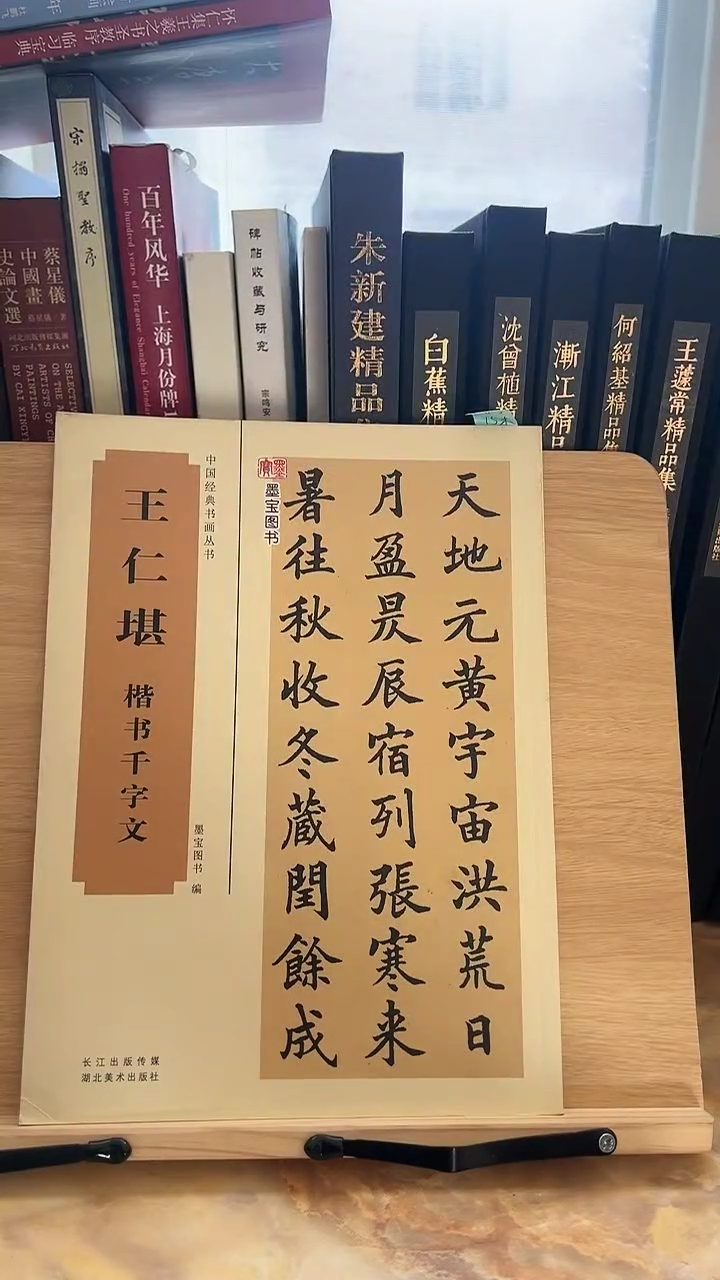 怀仁集王羲之书圣教序 临习宝典
宋搨聖教序
百年风华 上海月份牌
One hundred years of Elegance Shanghai Calendar
碑帖收藏与研究
宗鸣安
蔡星儀
中國畫
史論文選
蔡星儀/著
河北出版传媒集团
ON THE
ARTISTS OF
PAINTINGS
BY CAI XINGYI
朱新建精品
白蕉精
沈曾植精
漸江精品
何紹基精品集
王蘧常精品集
中国经典书画丛书
王仁堪
楷书千字文
墨宝图书 编
长江出版传媒
湖北美术出版社
墨宝
墨宝图书
天地元黄宇宙洪荒日
月盈昃辰宿列張寒来
暑往秋收冬蔵閏餘成